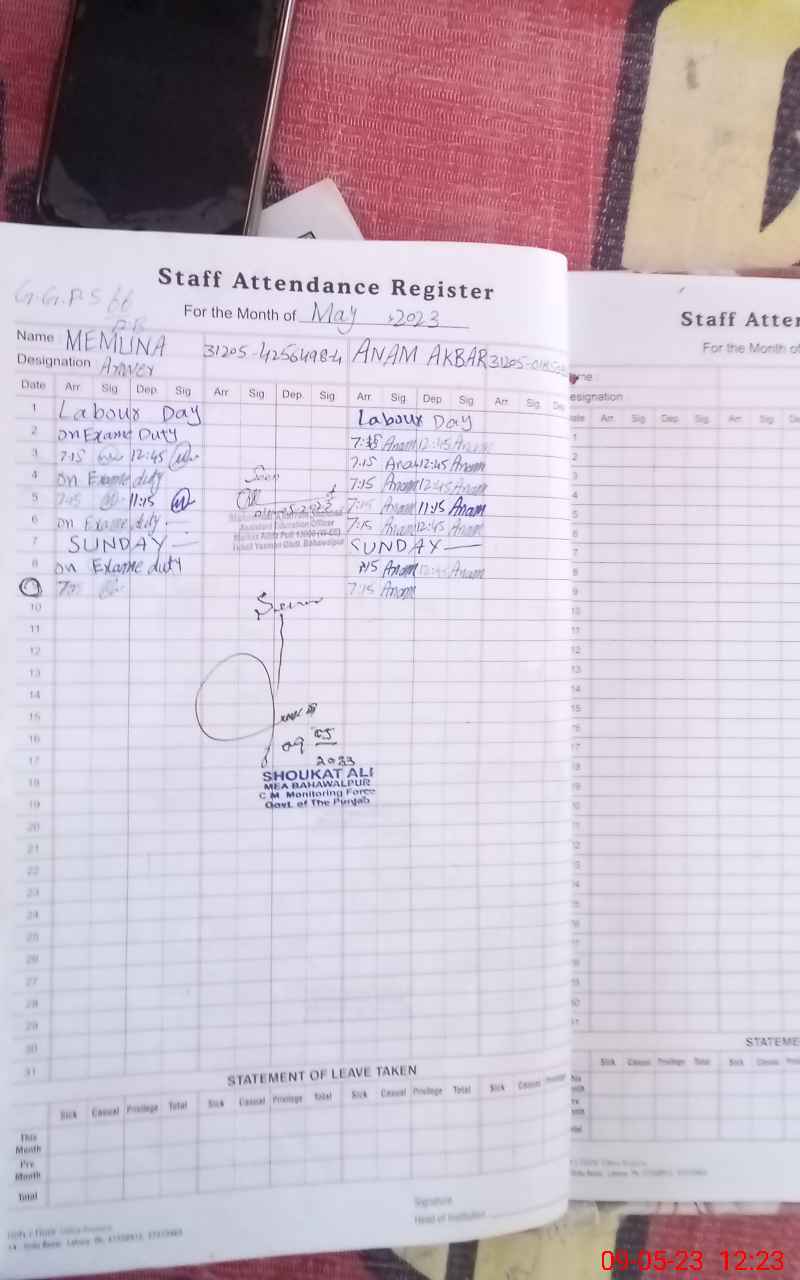 Staff Attendance Register
G.G.P.S 66
For the Month of May 2023
Name MEMUNA 31205-4256498-4 ANAM AKBAR 31205-
Designation
Date Arr. Sig. Dep. Sig Arr Sig. Dep. Sig. Arr. Sig. Dep. Sig. Arr. Sig. Dep
1 Labour Day Labour Day
2 on Exame Duty Anam 12:45 Anam
3 7:15 12:45 7:15 Ana 12:45 Anam
4 on Exame duty Seen 7:15 Anam 12:45 Anam
5 7:15 11:15 7:15 Anam 11:15 Anam
6 on Exame duty 7:15 Anam 12:45 Anam
Assistant Education Officer
7 SUNDAY SUNDAY
8 on Exame duty Anam 12:45 Anam
9 7:15 Anam
10
11
12
13
14
15
16
09 05
17
2023
SHOUKAT ALI
MEA BAHAWALPUR
C.M. Monitoring Force
Govt. of The Punjab
18
19
20
21
22
23
24
25
26
27
28
29
30
31
STATEMENT OF LEAVE TAKEN
Sick Casual Privilege Total Sick Casual Privilege Total Sick Casual Privilege Total Sick Casual Privilege
This Month
Pre Month
Total
Signature
Head of Institution
Staff Atter
For the Month of
esignation
Sig. Dep. Sig Arr. Sig.
1
2
3
4
5
6
7
8
9
10
11
12
13
14
15
16
17
18
19
STATEME
Sick Casual Privilege Total Sick Casual
09-05-23 12:23